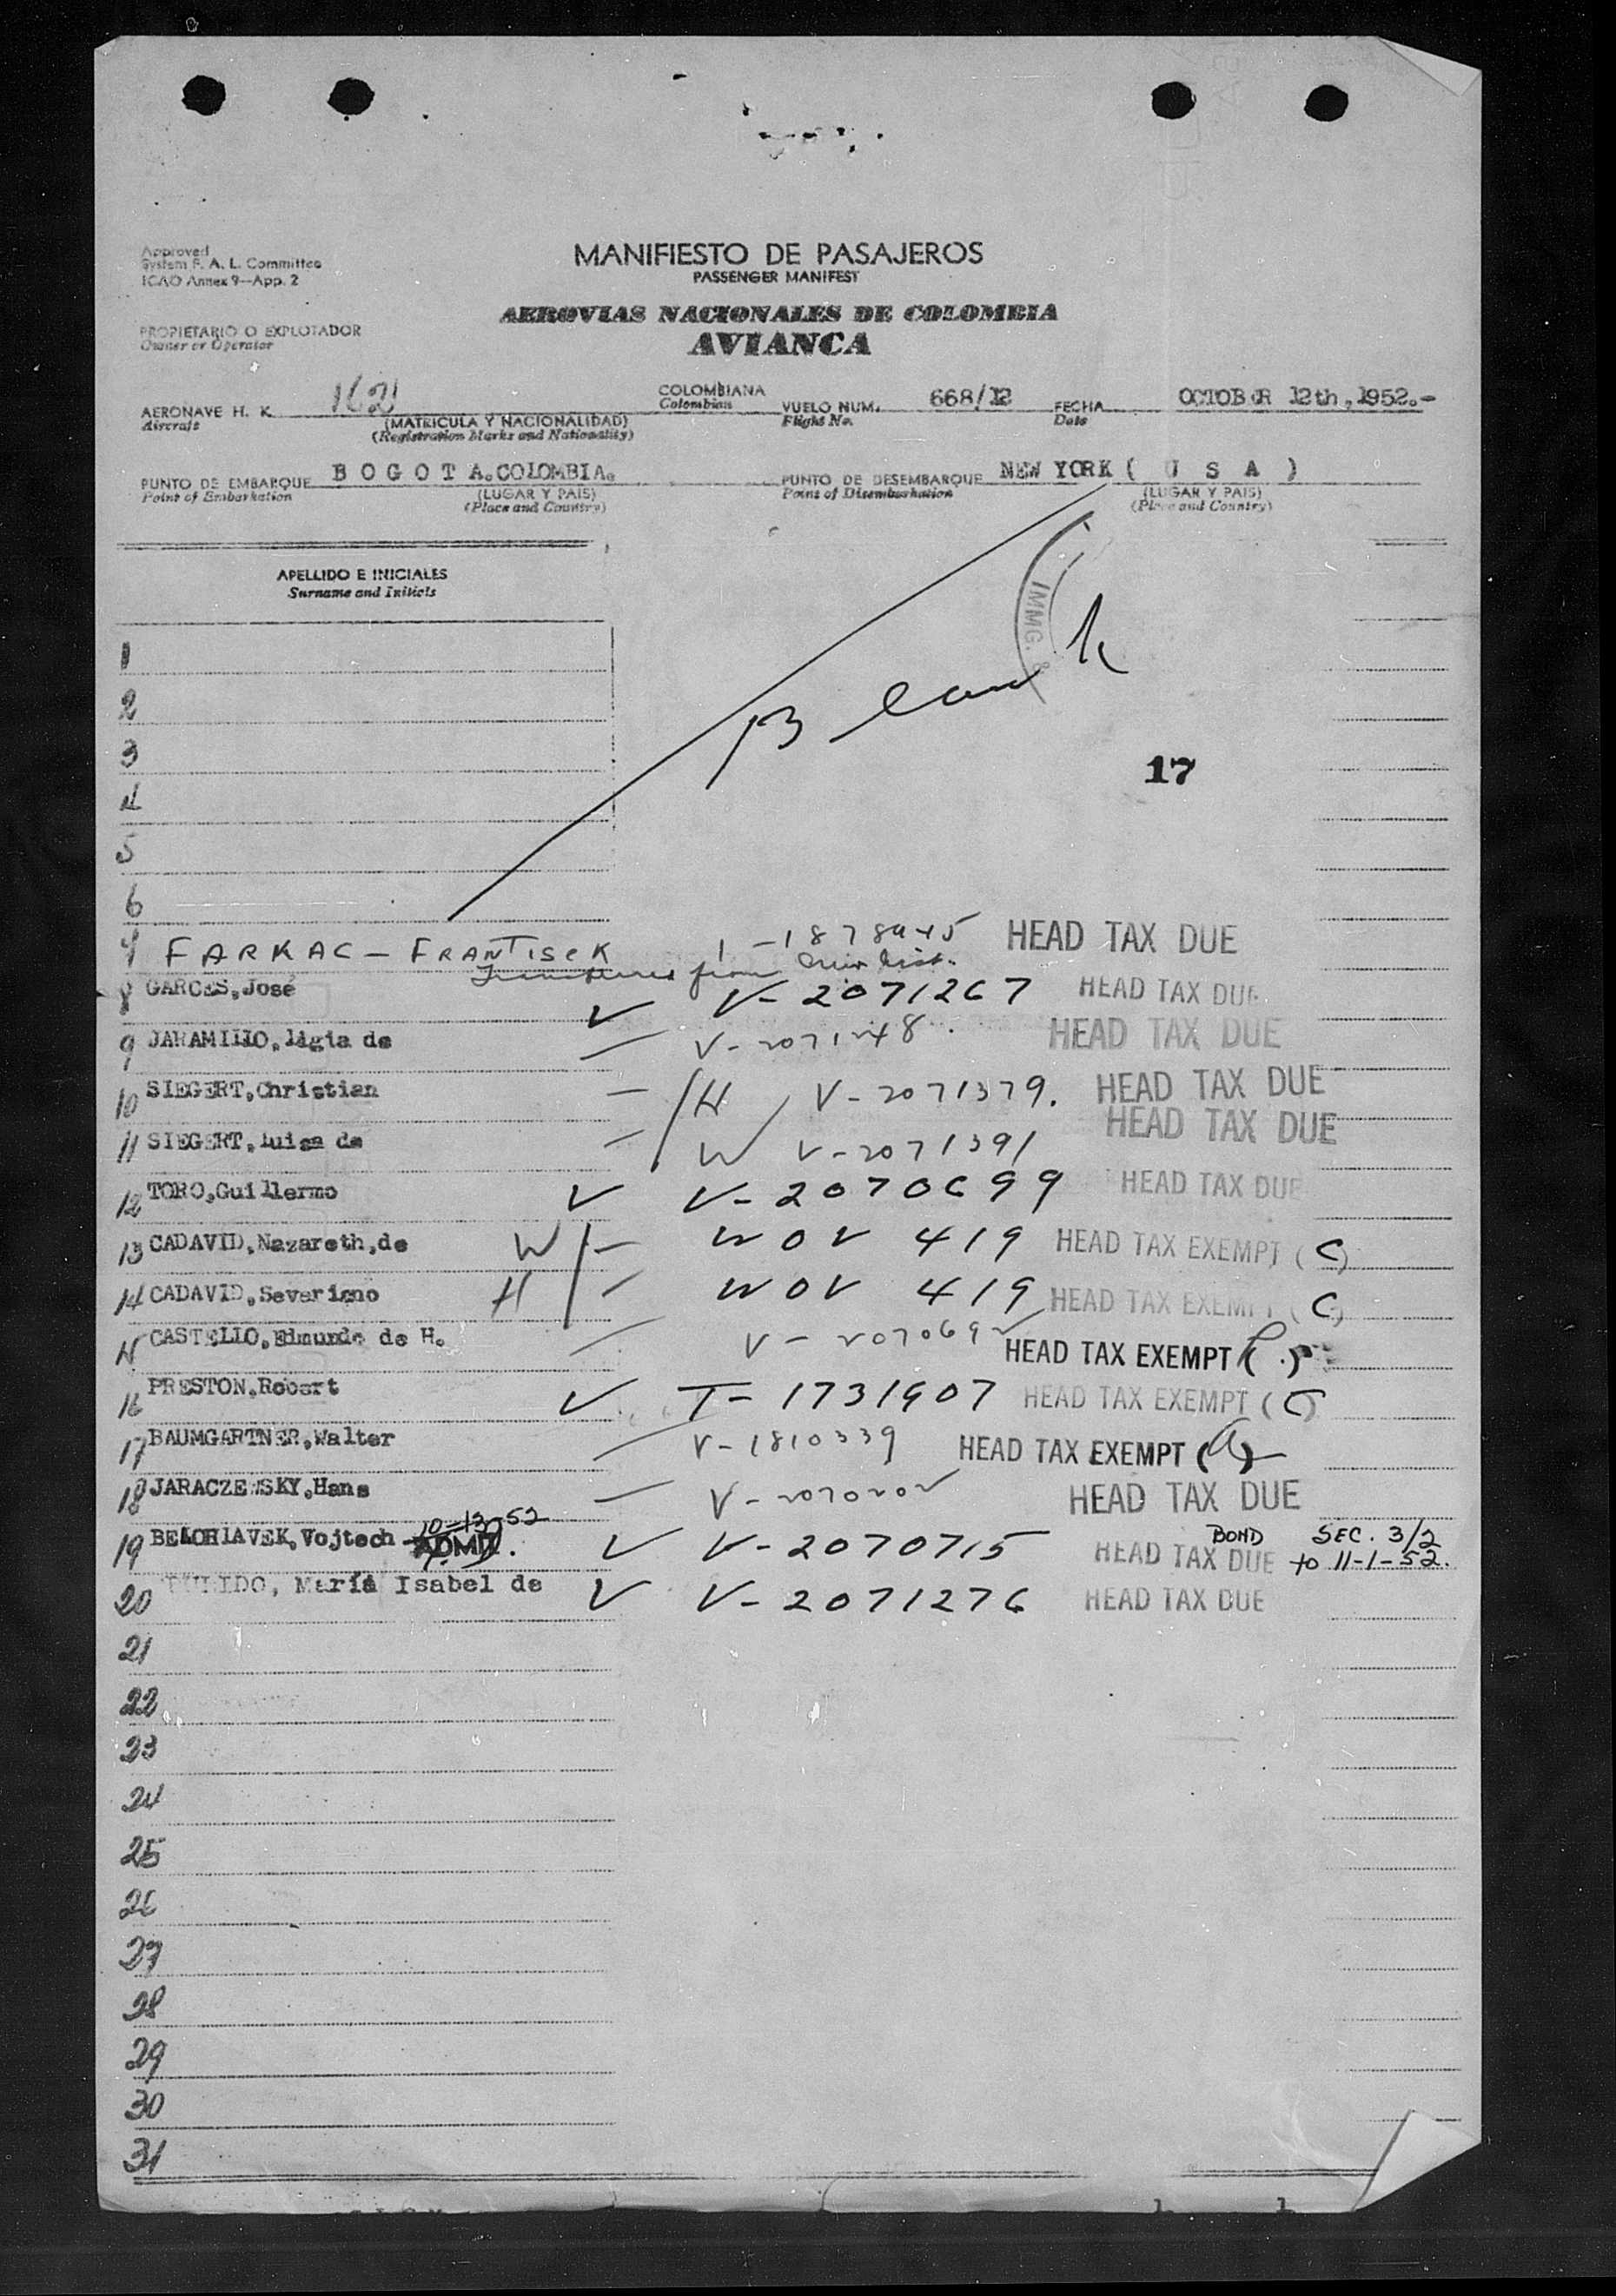 Approved
System F. A. L. Committee
ICAO Annex 9—App. 2
MANIFIESTO DE PASAJEROS
PASSENGER MANIFEST
PROPIETARIO O EXPLOTADOR
Owner or Operator
AEROVIAS NACIONALES DE COLOMBIA
AVIANCA
AERONAVE H. K. 162 COLOMBIANA VUELO NUM. 668/12 FECHA OCTOBER 12th,1952.-
Aircraft (MATRICULA Y NACIONALIDAD) Colombian Flight No. Date
(Registration Marks and Nationality)
PUNTO DE EMBARQUE B O G O T A.COLOMBIA. PUNTO DE DESEMBARQUE NEW YORK ( U S A )
Point of Embarkation (LUGAR Y PAIS) Point of Disembarkation (LUGAR Y PAIS)
(Place and Country) (Place and Country)
APELLIDO E INICIALES
Surname and Initials
IMMG. &
Blank
17
1
2
3
4
5
6
FARKAC - FRANTISEK HEAD TAX DUE
Transferred from Crew list.
8 GARCES,José V V-2071267 HEAD TAX DUE
9 JARAMILLO,Ligia de — V-2071248 HEAD TAX DUE
10 SIEGERT,Christian — H V-2071379. HEAD TAX DUE
11 SIEGERT,Luisa de — W V-2071391 HEAD TAX DUE
12 TORO,Guillermo V V-2070699 HEAD TAX DUE
13 CADAVID,Nazareth,de W — NOV 419 HEAD TAX EXEMPT (C)
14 CADAVID,Severiano H — NOV 419 HEAD TAX EXEMPT (C)
15 CASTELLO,Edmundo de H. — V-2070692 HEAD TAX EXEMPT
16 PRESTON,Robert V T-1731907 HEAD TAX EXEMPT (C)
17 BAUMGARTNER,Walter — V-1810339 HEAD TAX EXEMPT (A)
18 JARACZEWSKY,Hans — V-2070202 HEAD TAX DUE
19 BELOHLAVEK,Vojtech 10-13-52 ADMIT. V V-2070715 HEAD TAX DUE BOND SEC. 3/2
to 11-1-52.
20 PULIDO, María Isabel de V V-2071276 HEAD TAX DUE
21
22
23
24
25
26
27
28
29
30
31